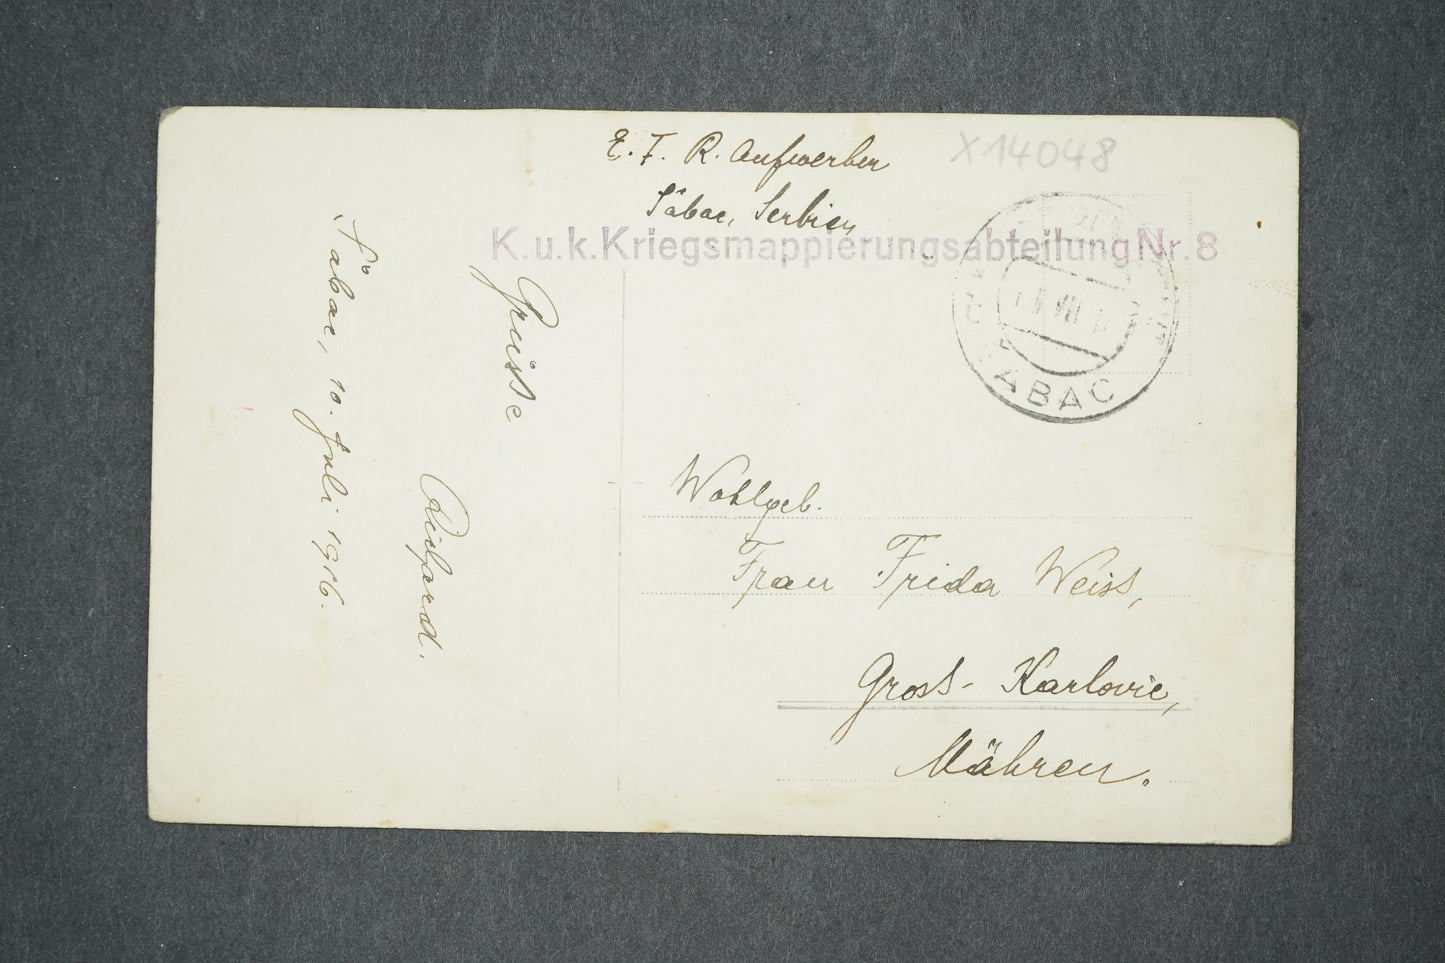 X14048
E. F. R. Aufwerber
Šabac, Serbien
K.u.k.Kriegsmappierungsabteilung Nr. 8
ABAC
VII
Šabac, 10. Juli 1916.
Grüsse
Richard.
Wohlgeb.
Frau Frida Weiss,
Gross-Karlovic,
Mähren.